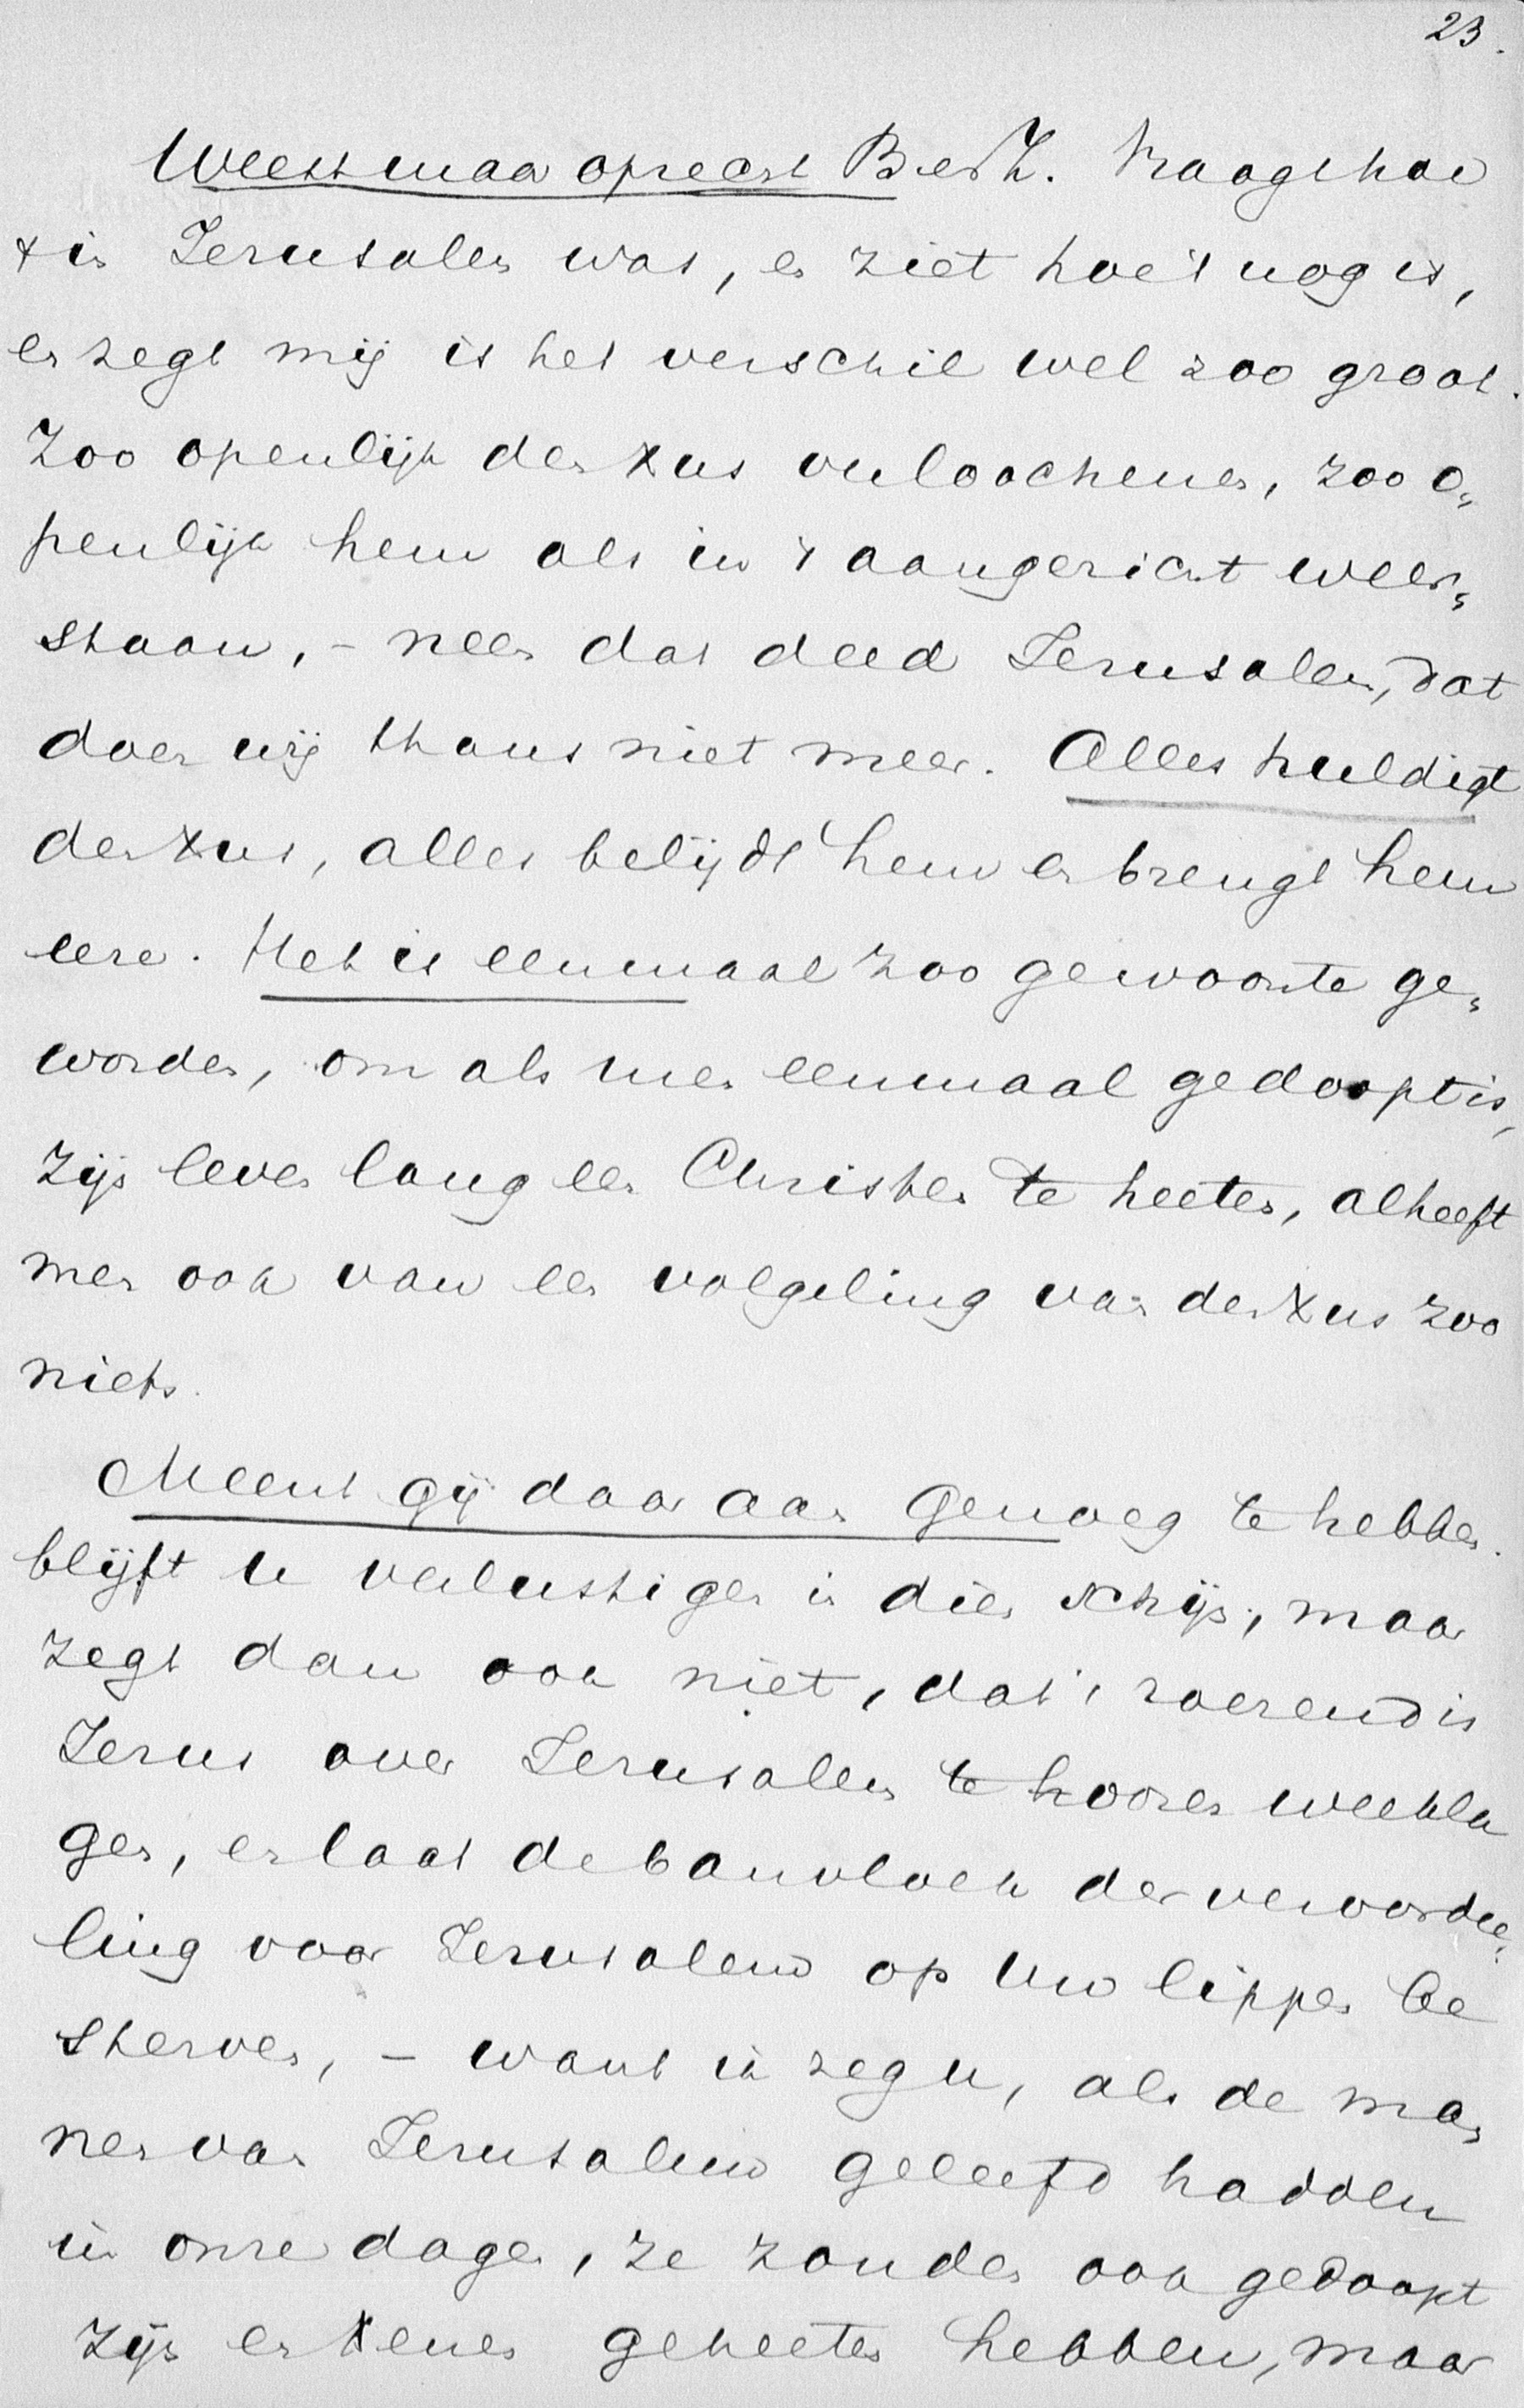 23.
Weest maar oprecht Br en Z. Vraagt hoe
't in Jerusalem was, en ziet hoe 't nog is,
en zegt mij is het verschil wel zoo groot.
Zoo openlijk den Xus verloochenen, zoo o„
penlijk hem als in 't aangezicht weer„
staan, – neen dat deed Jerusalem, dat
doen wij thans niet meer. Alles huldigt
den Xus, alles belijdt hem en brengt hem
eere. Het is eenmaal zoo gewoonte ge„
worden, om als men eenmaal gedoopt is,
zijn leven lang een Christen te heeten, al heeft
men ook van een volgeling van den Xus zoo
niets.
Meent gij daar aan genoeg te hebben.
blijft u verlustigen in dien schijn, maar
zegt dan ook niet, dat 't roerend is
Jezus over Jerusalem te hooren weekla
gen, en laat de banvloek der veroordee„
ling voor Jerusalem op Uw lippen be
sterven, – want ik zeg u, als de man„
nen van Jerusalem geleefd hadden
in onze dagen, ze zouden ook gedoopt
zijn en Xenen geheeten hebben, maar